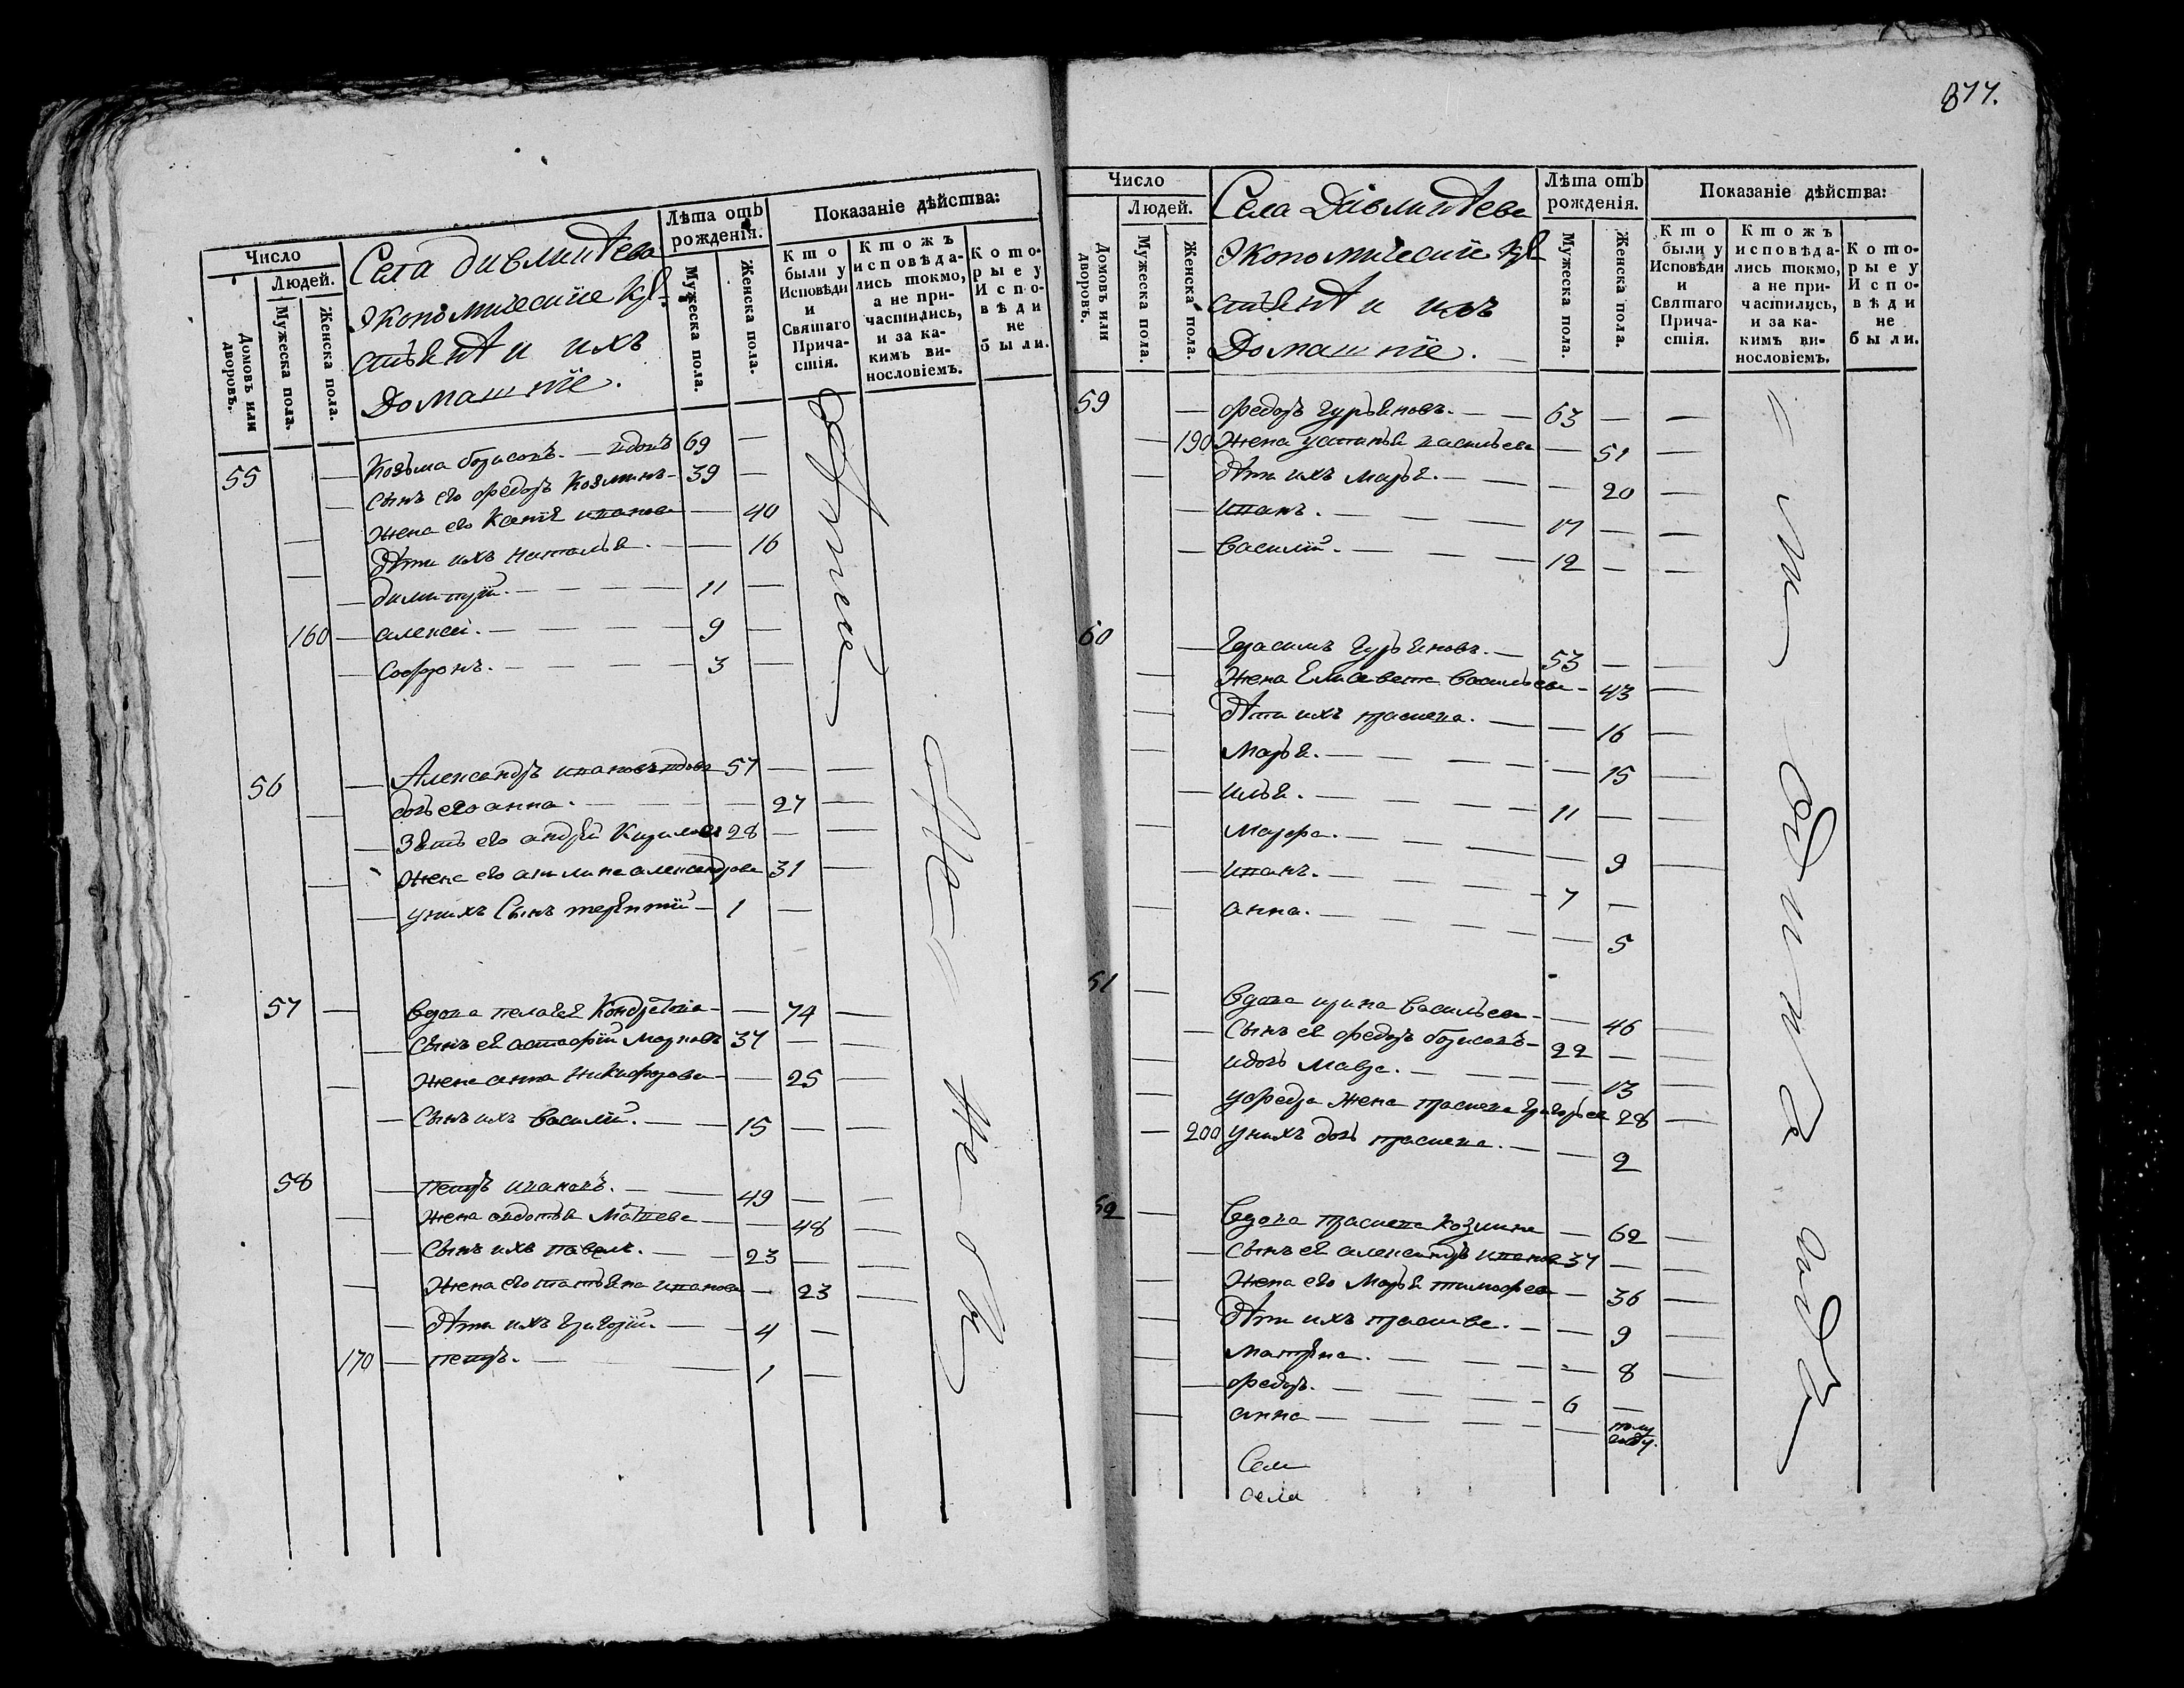 Число
Людей.
Домовъ или дворовъ.
Мужеска пола.
Женска пола.
Села Дивлинѣева
Экономическiе Кре
стьянѣ и ихъ
Домашнiе.
Лѣта отъ рожденiя.
Мужеска пола.
Женска пола.
Показанiе дѣйства:
Кто были у Исповѣди и Святаго Прича- стiя.
Ктожъ исповѣда- лись токмо, а не при- частились, и за ка- кимъ ви- нословiемъ.
Кото- рые у Испо- вѣди не были.
55 — Козьма борисовъ. — вдовъ 69 —
— Сынъ его федоръ Козминъ — 39 —
— Жена его Ксенiя иванова — 40
— Дѣти ихъ наталья. — — 16
— димитрiй. — — — 11 —
160 — алексей. — — — 9 —
— Софронъ. — — — 3 —
56 — Александръ ивановъ вдовъ 57 — —
— дочь его анна. — — — 27 —
— Зять его андрей Кирилов 28 — —
— Жена его акилина александрова 31 —
— у нихъ Сынъ терентiй — 1 —
57 — вдова пелагея Кондратова — — 74 —
— Сынъ ея астафiй Марковъ 37 — —
— Жена анна Никифорова — — 25 —
— Сынъ ихъ василiй. — — 15 — —
58 — петръ ивановъ. — — 49 — —
— Жена авдотья Матвева — — 48 —
— Сынъ ихъ павелъ. — — 23 — —
— Жена его татьяна иванова — 23 —
— дѣти ихъ григорiй. — — 4 —
170 — петръ. — — 1 —
877.
Число
Людей.
Домовъ или дворовъ.
Мужеска пола.
Женска пола.
Села Дивлинѣева
Экономическiе Кре
стьянѣ и ихъ
Домашнiе. —
Лѣта отъ рожденiя.
Мужеска пола.
Женска пола.
Показанiе дѣйства:
Кто были у Исповѣди и Святаго Прича- стiя.
Ктожъ исповѣда- лись токмо, а не при- частились, и за ка- кимъ ви- нословiемъ.
Кото- рые у Испо- вѣди не были.
59 — федоръ гурьяновъ. — — 63 — —
— 190 Жена устинья васильева — 51 —
— дѣти ихъ марья. — — — 20 —
— иванъ. — — — 17 — —
— Василiй. — — — 12 — —
60 — Герасимъ Гурьяновъ. — 53 — —
— Жена Елисавета Васильева — 43 —
— дѣти ихъ прасковa. — — 16 —
— Марья. — — — — 15 —
— илья. — — — 11 — —
— Марфа. — — — — 9 —
— иванъ. — — — 7 —
— анна. — — — — 5
61 — вдова ирина Васильева — — 46 —
— Сынъ ея федоръ борисовъ — 22 — —
— и дочь Мавра. — — — 13 —
— у федора жена прасковa григорьев 28 —
— 200 у нихъ дочь прасковa. — — 2
62 — вдова прасковa Козмина — 62 —
— Сынъ ея александръ иванов 37 — —
— Жена его Марья тимофеева — 36 —
— дѣти ихъ прасковa. — — 9 —
— матрена. — — — 8 —
— федоръ. — — — 6 —
— анна — — — — полу году.
Села
села